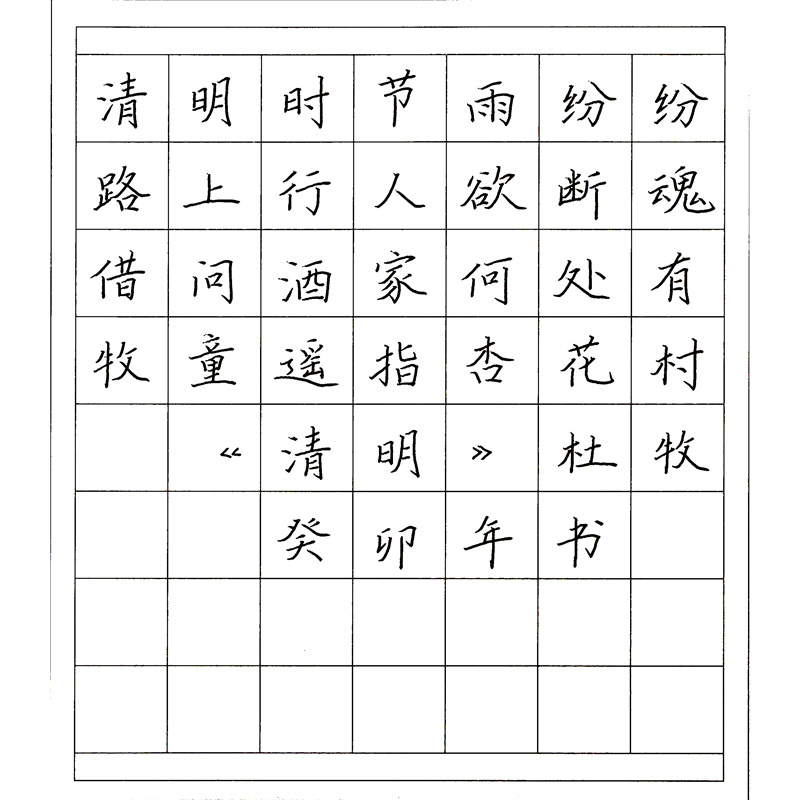 清明时节雨纷纷
路上行人欲断魂
借问酒家何处有
牧童遥指杏花村
《清明》杜牧
癸卯年书